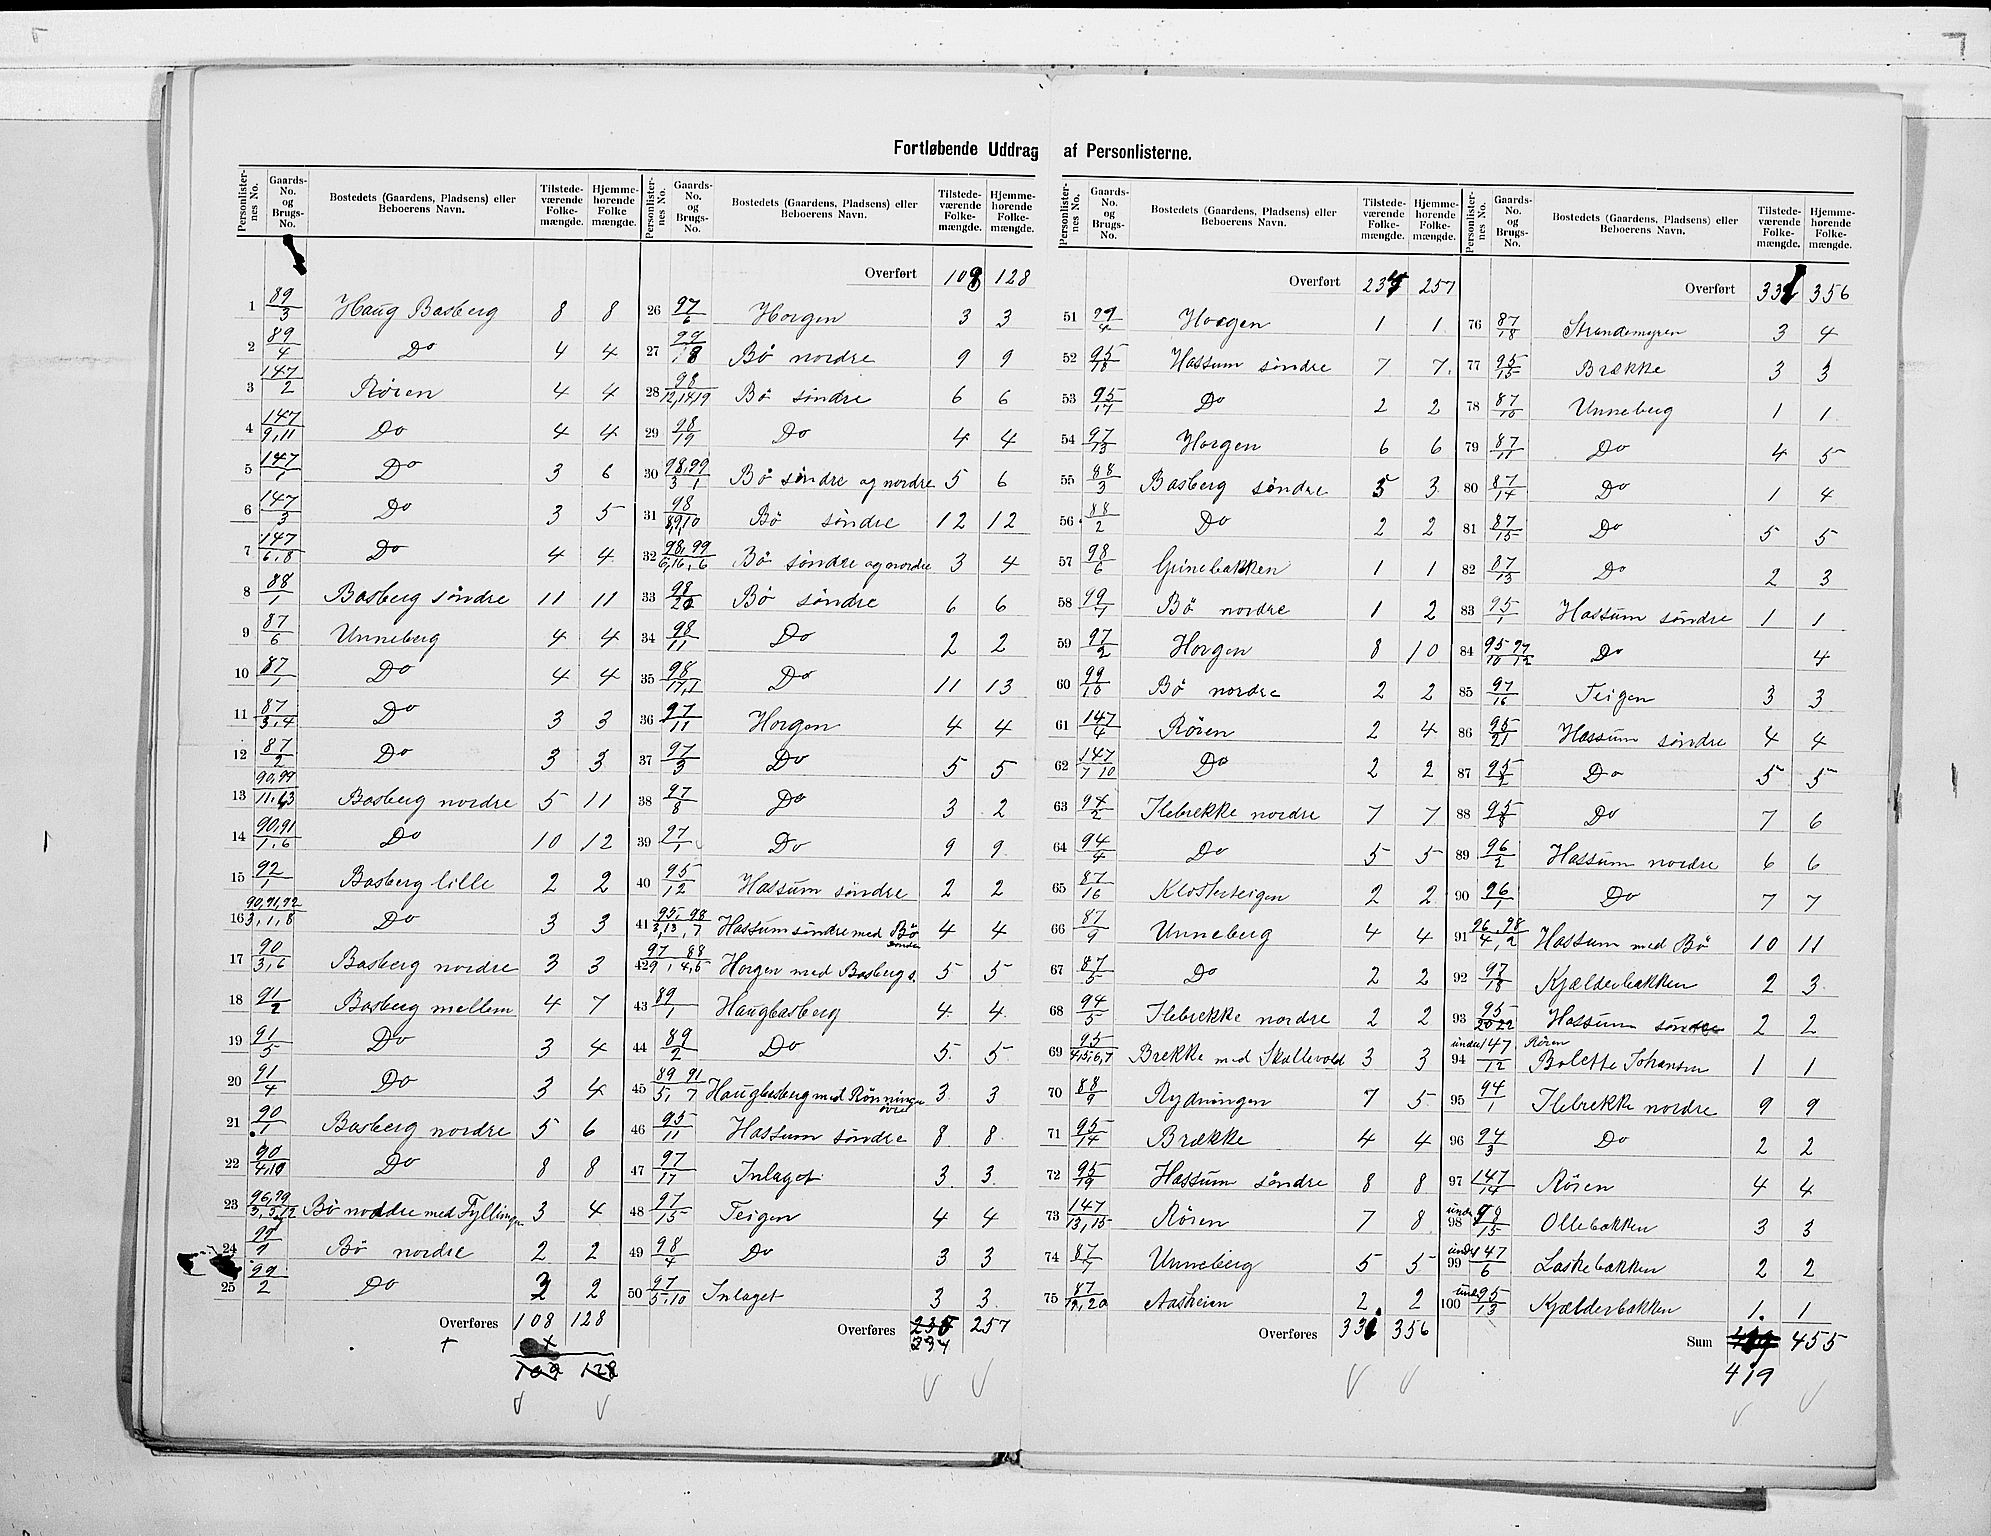 Fortløbende Uddrag af Personlisterne.
Personlisternes No. | Gaards-No. og Brugs-No. | Bostedets (Gaardens, Pladsens) eller Beboerens Navn. | Tilstedeværende Folkemængde. | Hjemmehørende Folkemængde.
1 89/3 Haug Basberg 8 8
2 89/4 Do 4 4
3 147/2 Røren 4 4
4 147/9,11 Do 4 4
5 147/1 Do 3 6
6 147/3 Do 3 5
7 147/6.8 Do 4 4
8 88/1 Basberg søndre 11 11
9 87/6 Unneberg 4 4
10 87/1 Do 4 4
11 87/3.4 Do 3 3
12 87/2 Do 3 3
13 90,99/ Basberg nordre 5 11
14 90,91/1.6 Do 10 12
15 92/1 Basberg lille 2 2
16 90,91,92/3,1,8 Do 3 3
17 90/3,6 Basberg nordre 3 3
18 91/2 Basberg mellem 4 7
19 91/5 Do 3 4
20 91/4 Do 3 4
21 90/1 Basberg nordre 5 6
22 90/4,10 Do 8 8
23 96,99/ Bø noddre med Fyllinge 3 4
24 Bø nordre 2 2
25 99/2 Do 2 2
Overføres 108 128
109 128
Personlisternes No. | Gaards-No. og Brugs-No. | Bostedets (Gaardens, Pladsens) eller Beboerens Navn. | Tilstedeværende Folkemængde. | Hjemmehørende Folkemængde.
Overført 108 128
26 97/6 Horgen 3 3
27 99/8 Bø nordre 9 9
28 98/12,14,19 Bø søndre 6 6
29 98/19 Do 4 4
30 98,99/3 1 Bø søndre og nordre 5 6
31 98/8,9,10 Bø søndre 12 12
32 98,99/6,16,6 Bø søndre og nordre 3 4
33 98/20 Bø søndre 6 6
34 98/11 Do 2 2
35 98/17,1 Do 11 13
36 97/11 Horgen 4 4
37 97/3 Do 5 5
38 97/8 Do 3 2
39 97/1 Do 9 9
40 95/12 Hassum søndre 2 2
41 95,98/3,13,7 Hassum søndre med Bø søndre 4 4
42 97 88/9,4,5 Horgen med Basberg s. 5 5
43 89/1 Haugbasberg 4 4
44 89/2 Do 5 5
45 89 91/5, 7 Haugbasberg med Rønninge øvre 3 3
46 95/11 Hassum søndre 8 8
47 97/17 Inlaget 3 3
48 97/15 Teigen 4 4
49 98/4 Do 3 3
50 97/5.10 Inlaget 3 3
Overføres 235 257
234
Personlisternes No. | Gaards-No. og Brugs-No. | Bostedets (Gaardens, Pladsens) eller Beboerens Navn. | Tilstedeværende Folkemængde. | Hjemmehørende Folkemængde.
Overført 234 257
51 99/4 Horgen 1 1
52 95/18 Hassum søndre 7 7
53 95/17 Do 2 2
54 97/13 Horgen 6 6
55 88/3 Basberg søndre 5 3
56 88/2 Do 2 2
57 98/6 Grinebakken 1 1
58 99/7 Bø nordre 1 2
59 97/2 Horgen 8 10
60 99/10 Bø nordre 2 2
61 147/4 Røren 2 4
62 147/7 10 Do 2 2
63 94/2 Ilebrekke nordre 7 7
64 94/4 Do 5 5
65 87/16 Klosterteigen 2 2
66 87/9 Unneberg 4 4
67 87/5 Do 2 2
68 94/5 Ilebrekke nordre 2 2
69 95/4,15,6,7 Brekke med Skallevold 3 3
70 88/9 Rydningen 7 5
71 95/14 Brække 4 4
72 95/19 Hassum søndre 8 8
73 147/13,15 Røren 7 8
74 87/7 Unneberg 5 5
75 87/19,20 Aasheien 2 2
Overføres 331 356
Personlisternes No. | Gaards-No. og Brugs-No. | Bostedets (Gaardens, Pladsens) eller Beboerens Navn. | Tilstedeværende Folkemængde. | Hjemmehørende Folkemængde.
Overført 331 356
76 87/18 Strandemyren 3 4
77 95/15 Brække 3 3
78 87/10 Unneberg 1 1
79 87/11 Do 4 5
80 87/14 Do 1 4
81 87/15 Do 5 5
82 87/13 Do 2 3
83 95/1 Hassum søndre 1 1
84 95 97/10 12 Do 4
85 97/16 Teigen 3 3
86 95/21 Hassum søndre 4 4
87 95/2 Do 5 5
88 95/8 Do 7 6
89 96/2 Hassum nordre 6 6
90 96/1 Do 7 7
91 96,98/4,2 Hassum med Bø 10 11
92 97/18 Kjælderbakken 2 3
93 95/20 22 Hassum søndre 2 2
94 under 147/12 Røren Bolette Johansen 1 1
95 94/1 Ilebrekke nordre 9 9
96 94/3 Do 2 2
97 147/14 Røren 4 4
98 under /15 Ollebakken 3 3
99 under 147/6 Laskebakken 2 2
100 under 95/13 Kjælderbakken 1 1
Sum 455
419